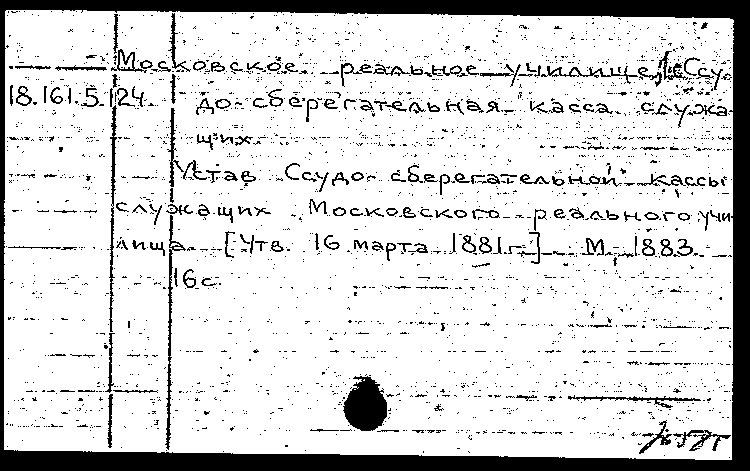 Московское реальное училище, 1-е Ссу-
18.161.5.124. до-сберегательная касса служа-
щих.
Устав Ссудо-сберегательной кассы
служащих Московского реального учи-
лища. [Утв. 16 марта 1881 г.] М. 1883.
16 с.